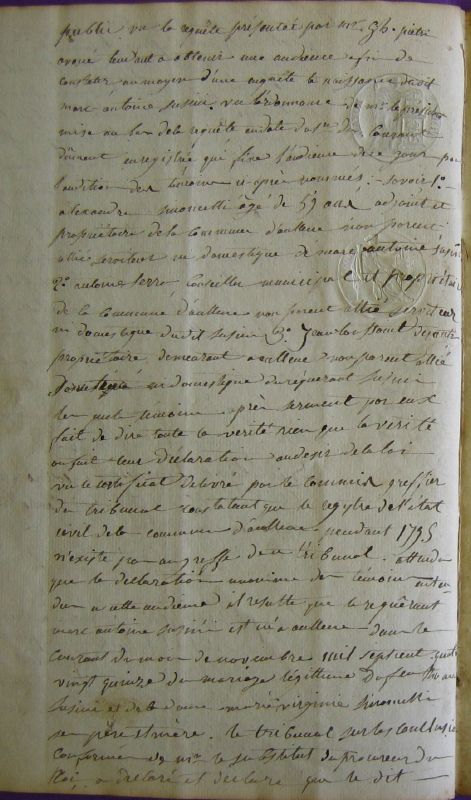 public vu la requête présentée par mr. Gh. pietri
avoué tendant a obtenir une audience afin de
constater au moyen d'une enquête la naissance dudit
marc antoine susini. vu l'ordonnance de mr le président
mise au bas de la requête en date du du courant
dûment enregistrée qui fixe l'audience de ce jour pour
l'audition des témoins ci après nommés: savoir 1º.
alexandre simonetti âgé de 59 ans adjoint et
propriétaire de la commune d'aullene non parent
allié serviteur ni domestique de marc antoine susini
2º. antoine serra conseiller municipal et propriétaire
de la commune d'aullene non parent allié serviteur
ni domestique dudit susini 3º. Jean
propriétaire, demeurant a aullene non parent allié
ni domestique du requérant susini
lesquels témoins après serment par eux
fait de dire toute la verité rien que la verité
ont fait leur declaration au desir de la loi
vu le certificat delivré par le commis greffier
du tribunal constatant que le registre de l'état
civil de la commune d'aullene pendant 1795
n'existe pas au greffe de ce tribunal. attendu
que de la declaration unanime des témoins enten-
dus a cette audience il resulte que le requérant
marc antoine susini est né a aullene dans le
courant du mois de novembre mil sept cent quatre
vingt quinze du mariage légitime du feu
susini et de la dame marie virginie simonetti
ses père et mère. le tribunal sur les conclusions
conformes de mr. le substitut du procureur du
Roi, a declaré et declare que le dit